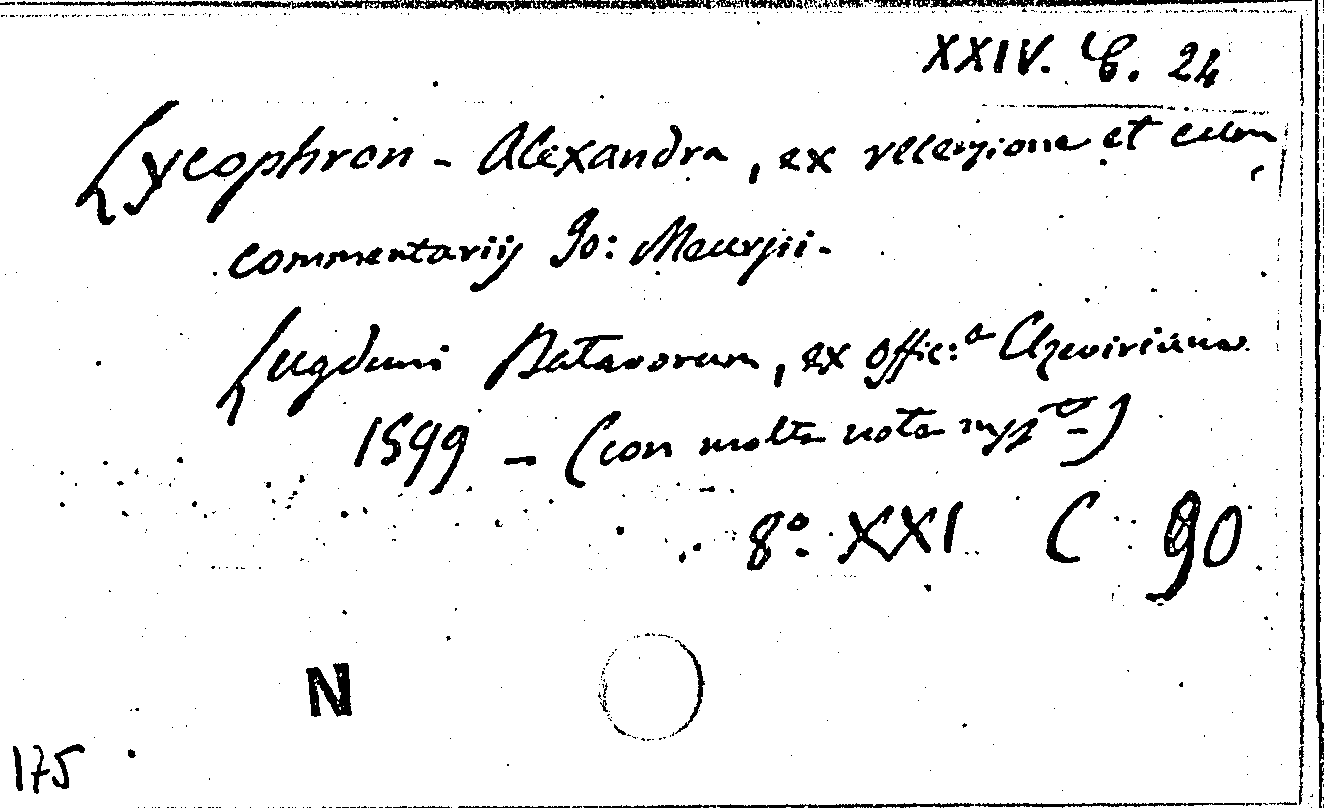 XXIV. C. 24
Lycophron - Alexandra, ex recensione et cum
commentariis Jo: Meursii.
Lugduni Batavorum, ex offic:a Elzeviriana
1599 - (con molte note mss.)
8º. XXI C 90
N
175